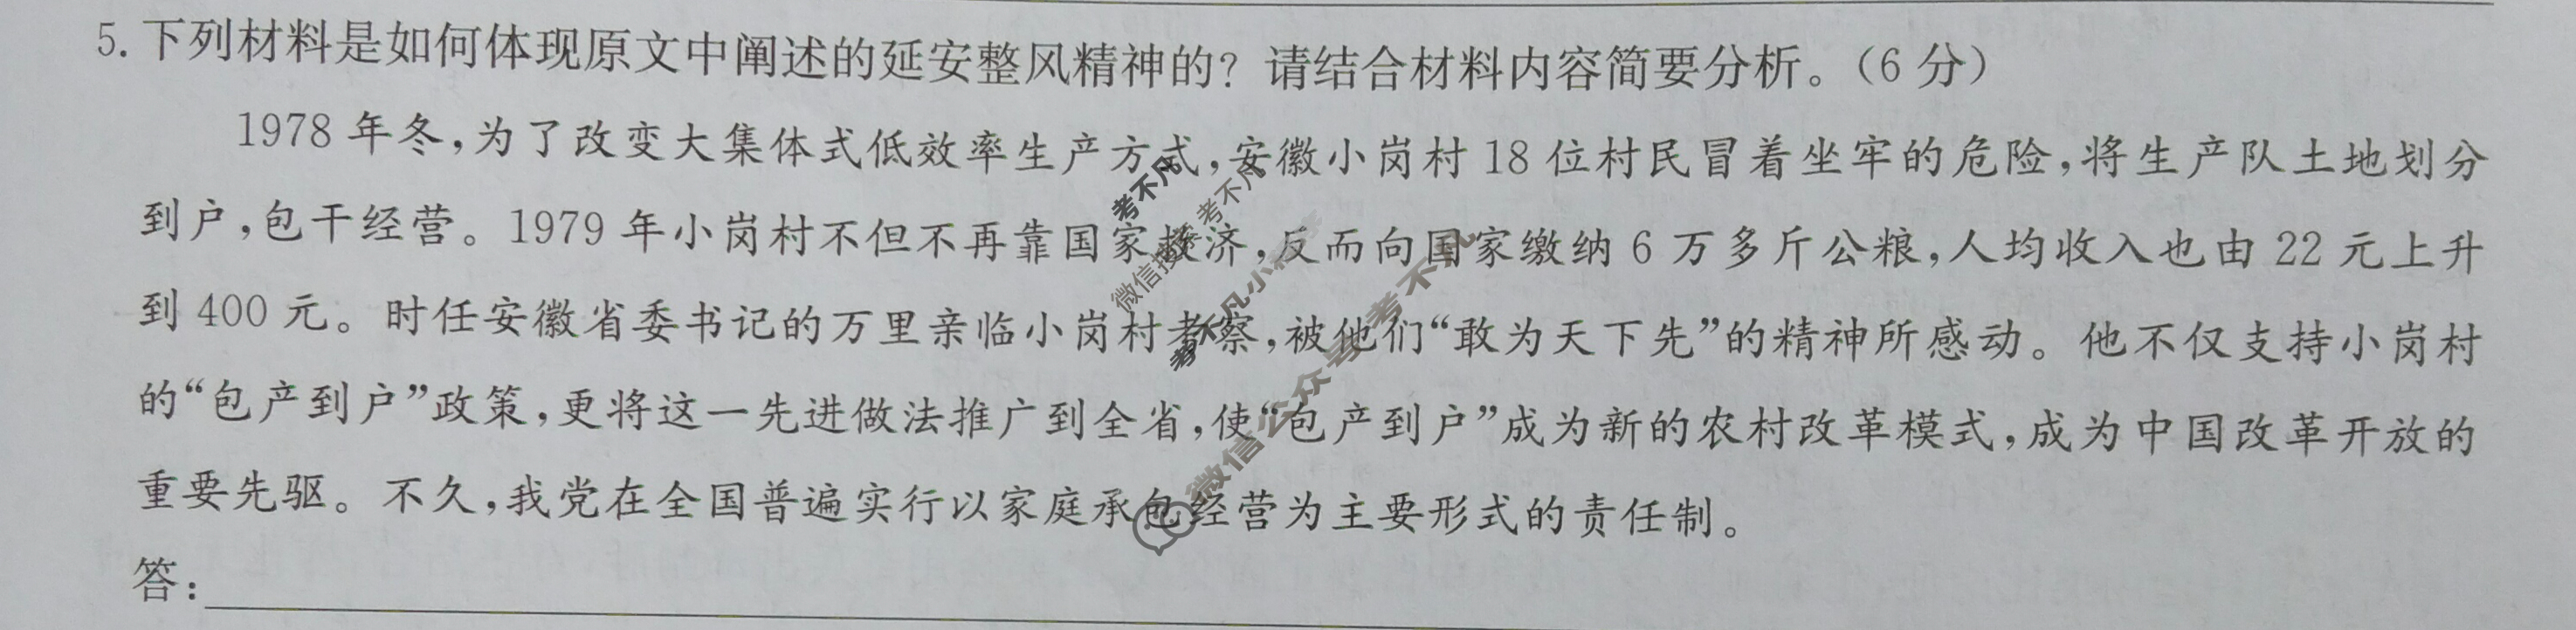 5. 下列材料是如何体现原文中阐述的延安整风精神的？请结合材料内容简要分析。（6 分）
1978 年冬，为了改变大集体式低效率生产方式，安徽小岗村 18 位村民冒着坐牢的危险，将生产队土地划分
到户，包干经营。1979 年小岗村不但不再靠国家救济，反而向国家缴纳 6 万多斤公粮，人均收入也由 22 元上升
到 400 元。时任安徽省委书记的万里亲临小岗村考察，被他们“敢为天下先”的精神所感动。他不仅支持小岗村
的“包产到户”政策，更将这一先进做法推广到全省，使“包产到户”成为新的农村改革模式，成为中国改革开放的
重要先驱。不久，我党在全国普遍实行以家庭承包经营为主要形式的责任制。
答：
考不凡
考不凡
微信搜
考不凡小
考不
微信公众号